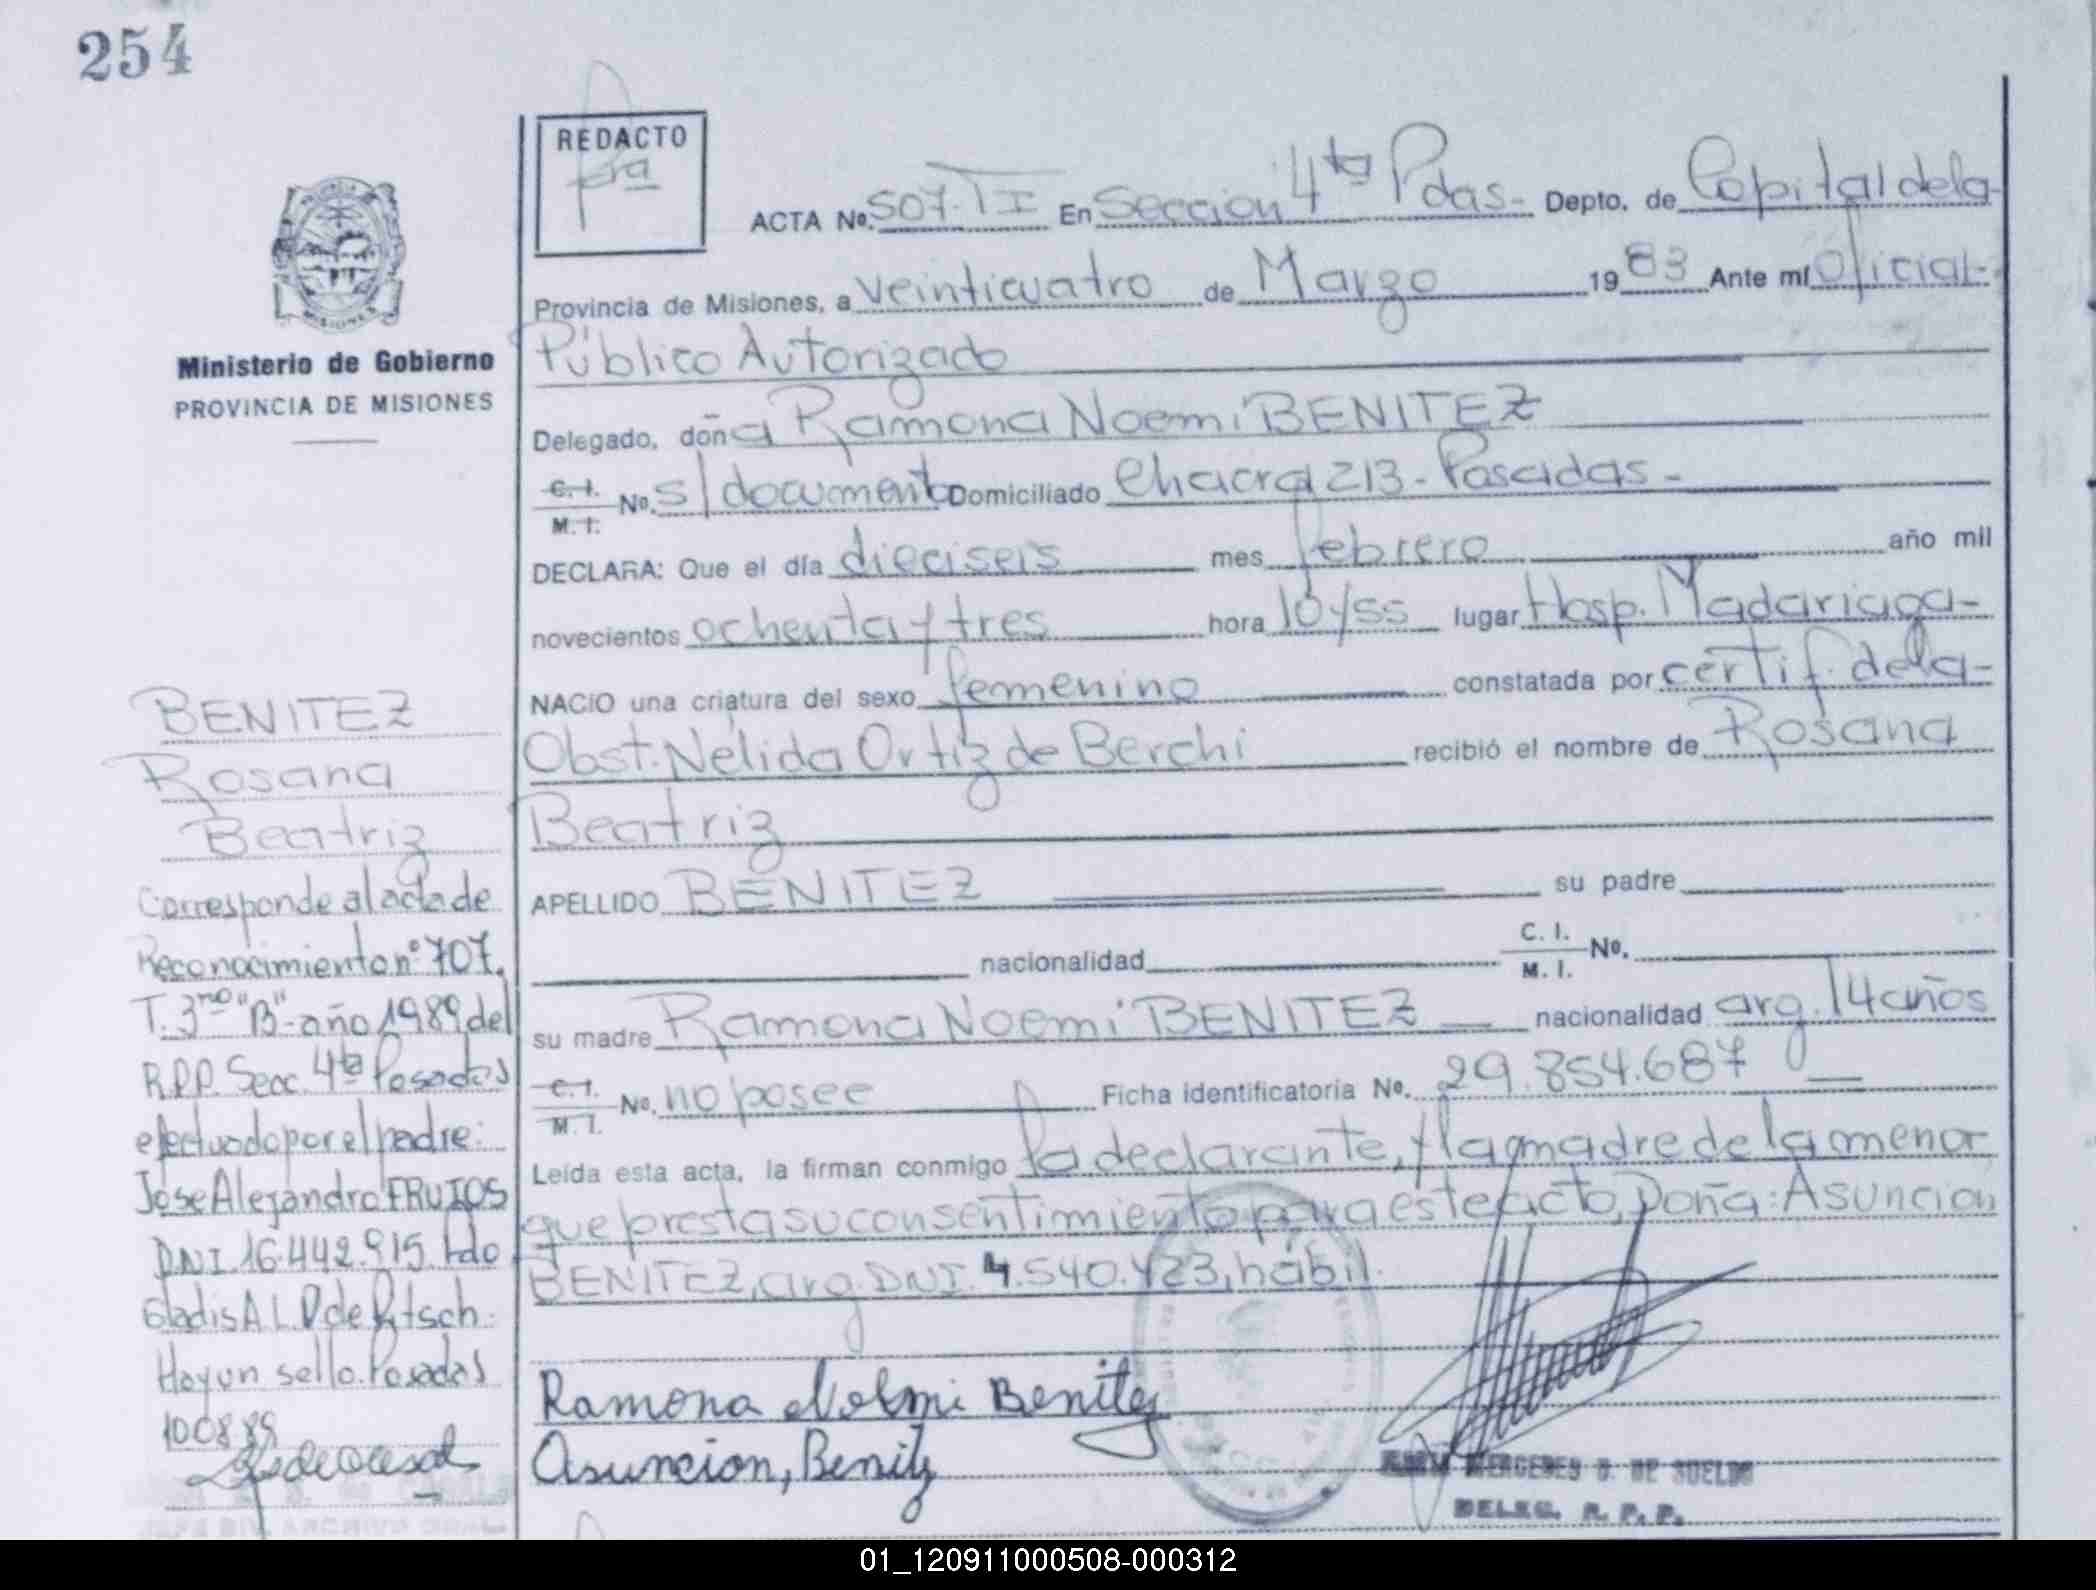 254
REDACTO
ACTA Nº. 507. TI En Seccion 4ta Pdas.- Depto. de Capital dela-
Provincia de Misiones, a veinticuatro de Marzo 1983 Ante mí Oficial-
Público Autorizado
Delegado, doña Ramona Noemi BENITEZ
C. I. M. I. No. s/documento Domiciliado Chacra 213- Posadas-
DECLARA: Que el día dieciseis mes febrero año mil
novecientos ochenta y tres hora 10y55 lugar Hosp. Madariaga-
NACIO una criatura del sexo femenino constatada por certif. dela-
Obst. Nélida Ortiz de Berchi recibió el nombre de Rosana
Beatriz
APELLIDO BENITEZ su padre
nacionalidad C. I. M. I. No.
su madre Ramona Noemi BENITEZ nacionalidad arg. 14 años
C. I. M. I. No. no posee Ficha identificatoria No. 29.854.687
Leída esta acta, la firman conmigo la declarante, y la madre de la menor
que presta su consentimiento para este acto, Doña: Asuncion
BENITEZ, arg. DNI. 4.540.423, hábil.
Ramona Noemi Benitez
Asuncion, Benitz
MERCEDES D. DE SUELDO
DELEG. R. P. P.
Ministerio de Gobierno
PROVINCIA DE MISIONES
BENITEZ
Rosana
Beatriz
Corresponde al acta de
Reconocimiento nº 707.
T. 3ro "B"- año 1989 del
R.P.P. Secc. 4ta Posadas
efectuado por el padre:
Jose Alejandro FRUTOS
DNI. 16.442.915. Fdo
Gladis A L. D de
Hay un sello. Posadas
100889
01_120911000508-000312